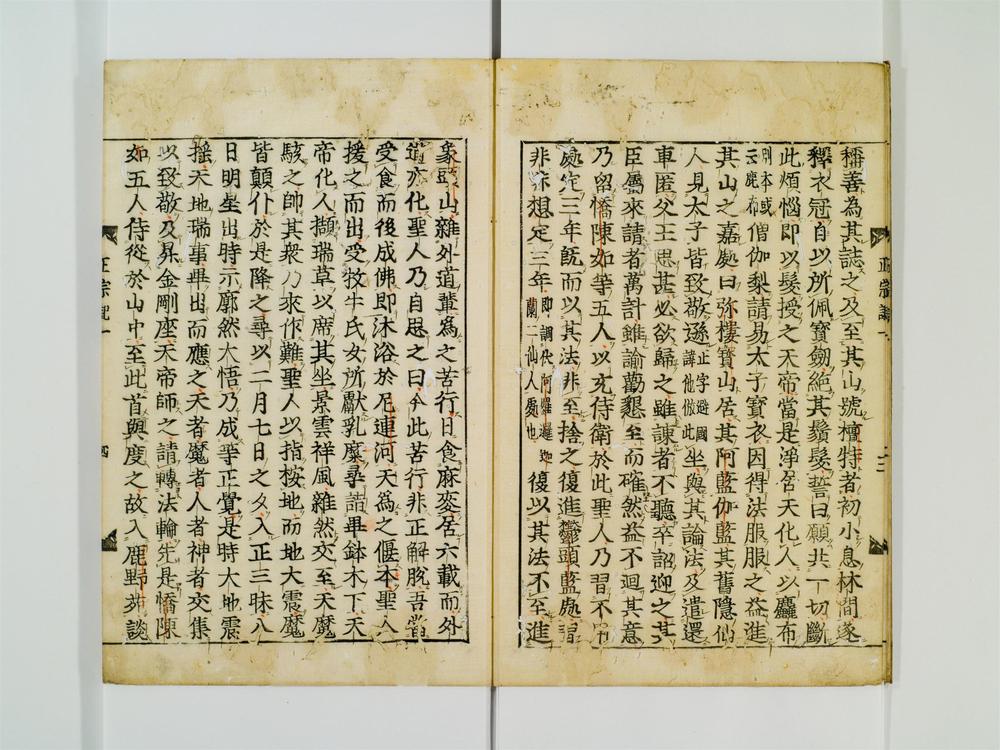 種善為其誌之及至其山號檀特者初小息林間遂
釋衣冠自以所佩寶劒絶其鬚髮誓曰願共一切斷
此煩惱即以髮授之天帝當是淨居天化人以麤布
別本或云鹿布僧伽梨請易太子寶衣因得法服服之益進
其山之嘉處曰弥樓寶山居其阿藍伽藍其舊隱仙
人見太子皆致敬遜正字避國諱他倣此坐與其論法及遣還
車匿父王思甚必欲歸之雖諫者不聽卒詔迎之其
臣屬來請者萬計雖諭勸懇至而確然益不迴其意
乃留憍陳如等五人以充侍衛於此聖人乃習不用
處定三年既而以其法非至捨之復進欝頭藍處習
非非想定三年即調代阿羅邏迦蘭二仙人處也復以其法不至進
象頭山雜外道輩為之苦行日食麻麥居六載而外
道亦化聖人乃自思之曰今此苦行非正解脫吾當
受食而後成佛即沐浴於尼連河天為之偃木聖人
援之而出受牧牛氏女所獻乳糜尋詣畢鉢木下天
帝化人擷瑞草以席其坐景雲祥風雜然交至天魔
駭之帥其衆乃來作難聖人以指按地而地大震魔
皆顛仆於是降之尋以二月七日之夕入正三昧八
日明星出時示廓然大悟乃成等正覺是時大地震
搖天地瑞事畢出而應之天者魔者人者神者交集
以致敬及昇金剛座天帝師之請轉法輪先是憍陳
如五人侍從於山中至此首與度之故入鹿野苑談
正宗記一
四